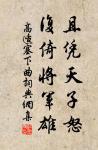 且凭天子怒
復倚將軍雄
高適塞下曲詞典網集